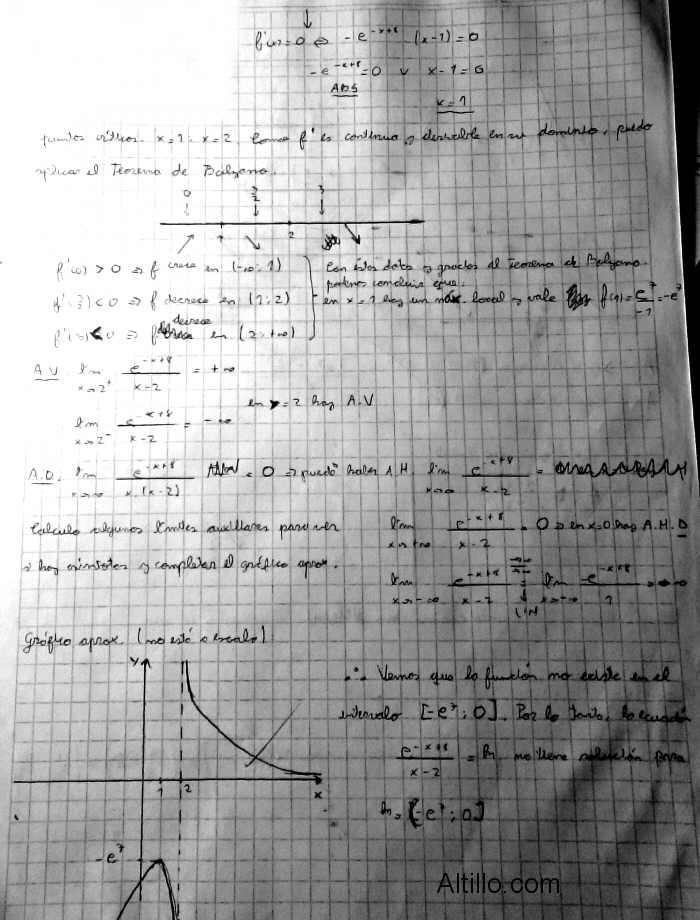 f'(x)=0 ⇔ -e^(-x+8) (x-1)=0
-e^(-x+8)=0 ∨ x-1=0
ABS
x=1
puntos críticos. x=1 x=2. Como f' es continua y derivable en su dominio, puedo
aplicar el Teorema de Bolzano.
0 3/2 3
1 2
f'(0) > 0 ⇒ f crece en (-∞; 1)
f'(3/2) < 0 ⇒ f decrece en (1; 2)
f'(3) < 0 ⇒ f decrece en (2; +∞)
Con estos datos y gracias al Teorema de Bolzano
podemos concluir que:
en x=1 hay un máx. local y vale f(1)= e^7/-1 = -e^7
A.V lim x→2⁺ e^(-x+8)/(x-2) = +∞
lim x→2⁻ e^(-x+8)/(x-2) = -∞
en x=2 hay A.V
A.O. lim e^(-x+8)/(x.(x-2)) = 0 ⇒ puede haber A.H. lim e^(-x+8)/(x-2) =
Calculo algunos límites auxiliares para ver
si hay asíntotas y completar el gráfico aprox.
lim x→+∞ e^(-x+8)/(x-2) = 0 ⇒ en x=0 hay A.H.D
lim x→-∞ e^(-x+8)/(x-2) = L'H lim x→-∞
Gráfico aprox. (no está a escala)
y
1 2 x
-e^7
∴ Vemos que la función no existe en el
intervalo [-e^7; 0]. Por lo tanto, la ecuación
e^(-x+8)/(x-2) = k no tiene solución para
k = (-e^7; 0]
Altillo.com